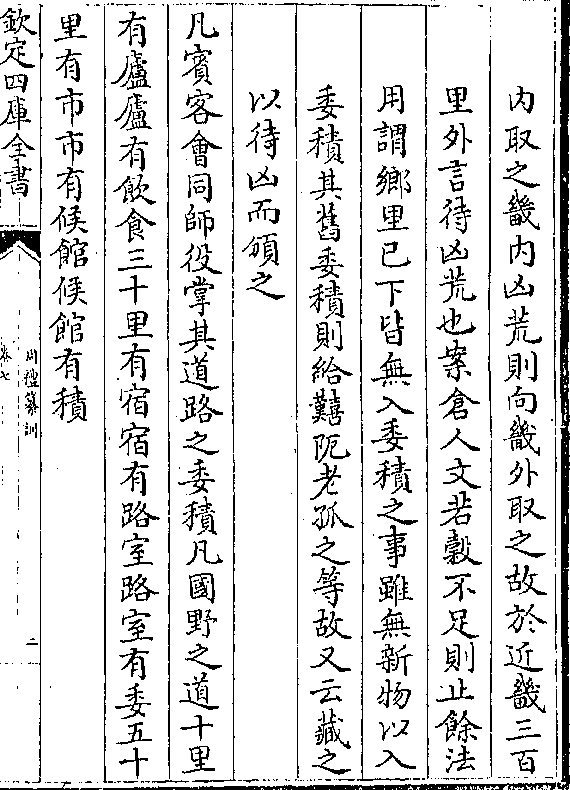 内取之畿内凶荒則向畿外取之故於近畿三百
里外言待凶荒也案倉人文若榖不足則止餘法
用謂鄉里已下皆無入委積之事雖無新物以入
委積其舊委積則給囏阨老孤之等故又云藏之
以待凶而頒之
凡賓客會同師役掌其道路之委積凡國野之道十里
有廬廬有飲食三十里有宿宿有路室路室有委五十
里有市市有候館候館有積
欽定四庫全書
周禮纂訓
卷七
二